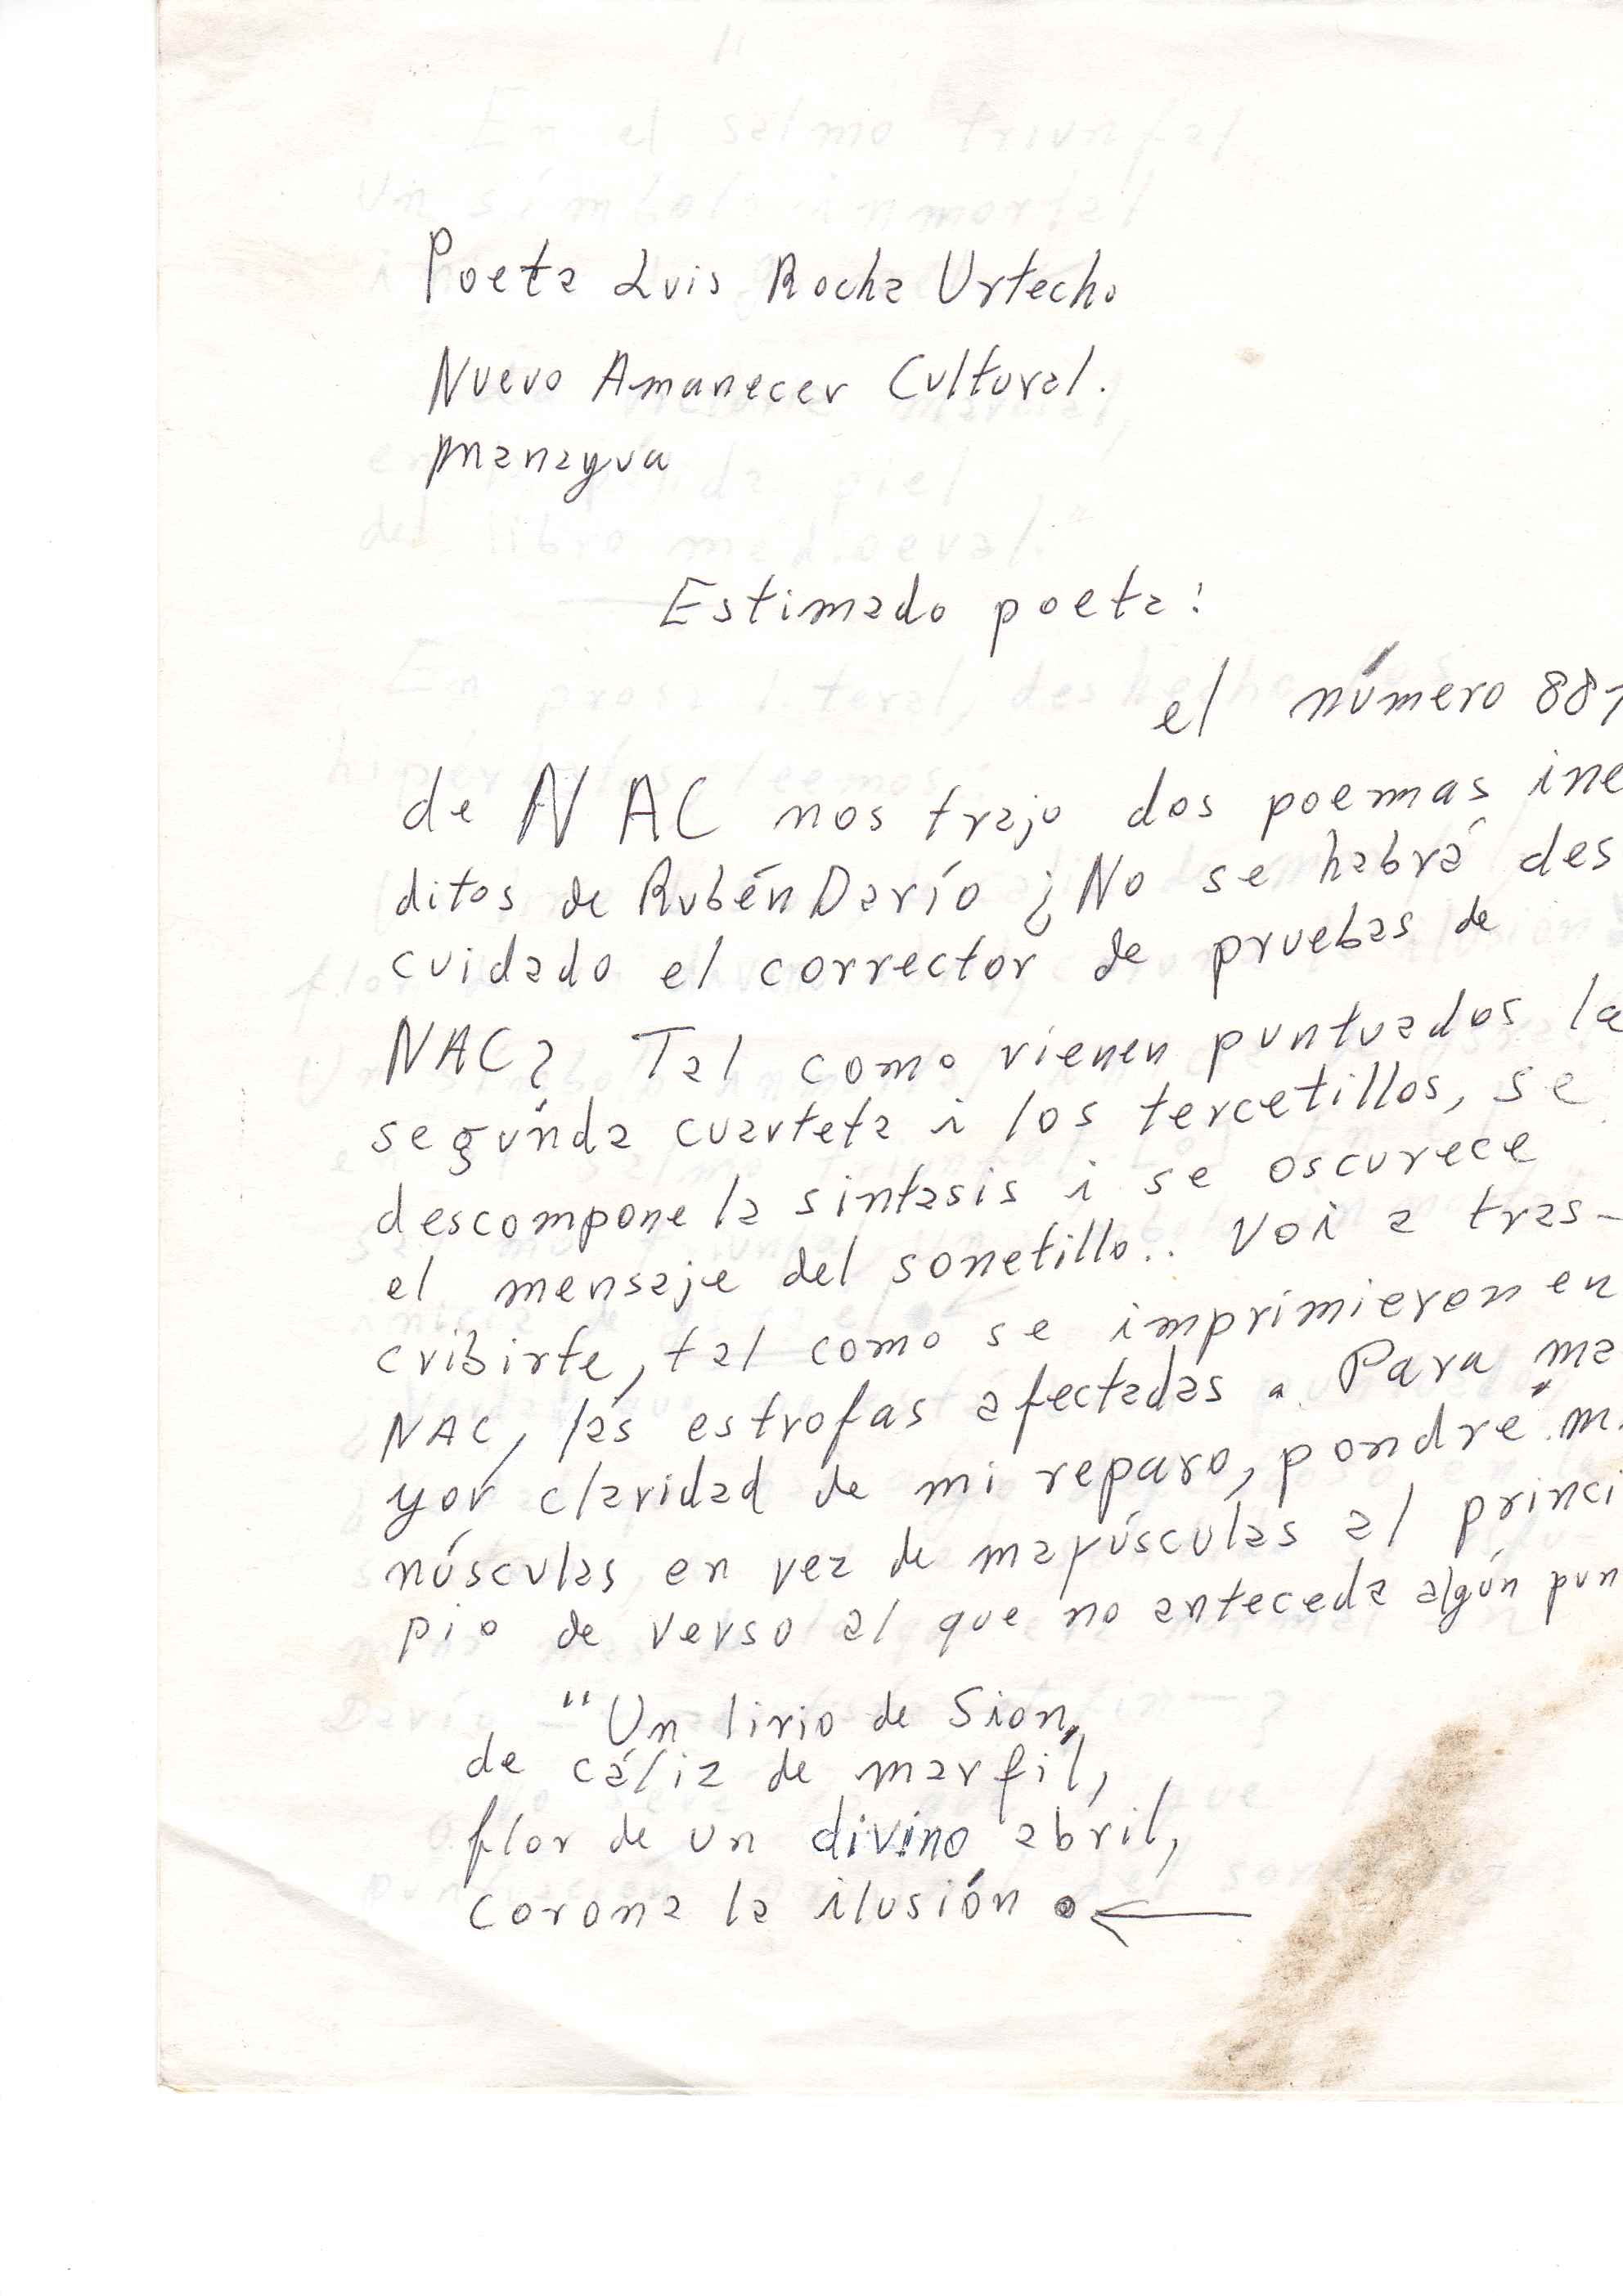 Poeta Luis Rocha Urtecho
Nuevo Amanecer Cultural.
Managua
Estimado poeta:
el número 887
de NAC nos trajo dos poemas iné
ditos de Rubén Darío ¿No se habrá des
cuidado el corrector de pruebas de
NAC? Tal como vienen puntuados la
segunda cuarteta i los tercetillos, se
descompone la sintasis i se oscurece
el mensaje del sonetillo.. Voi a tras-
cribirte, tal como se imprimieron en
NAC, las estrofas afectadas. Para ma
yor claridad de mi reparo, pondré mi
núsculas en vez de mayúsculas al princi
pio de verso al que no anteceda algún pun
"Un lirio de Sion,
de cáliz de marfil,
flor de un divino abril,
corona la ilusión.